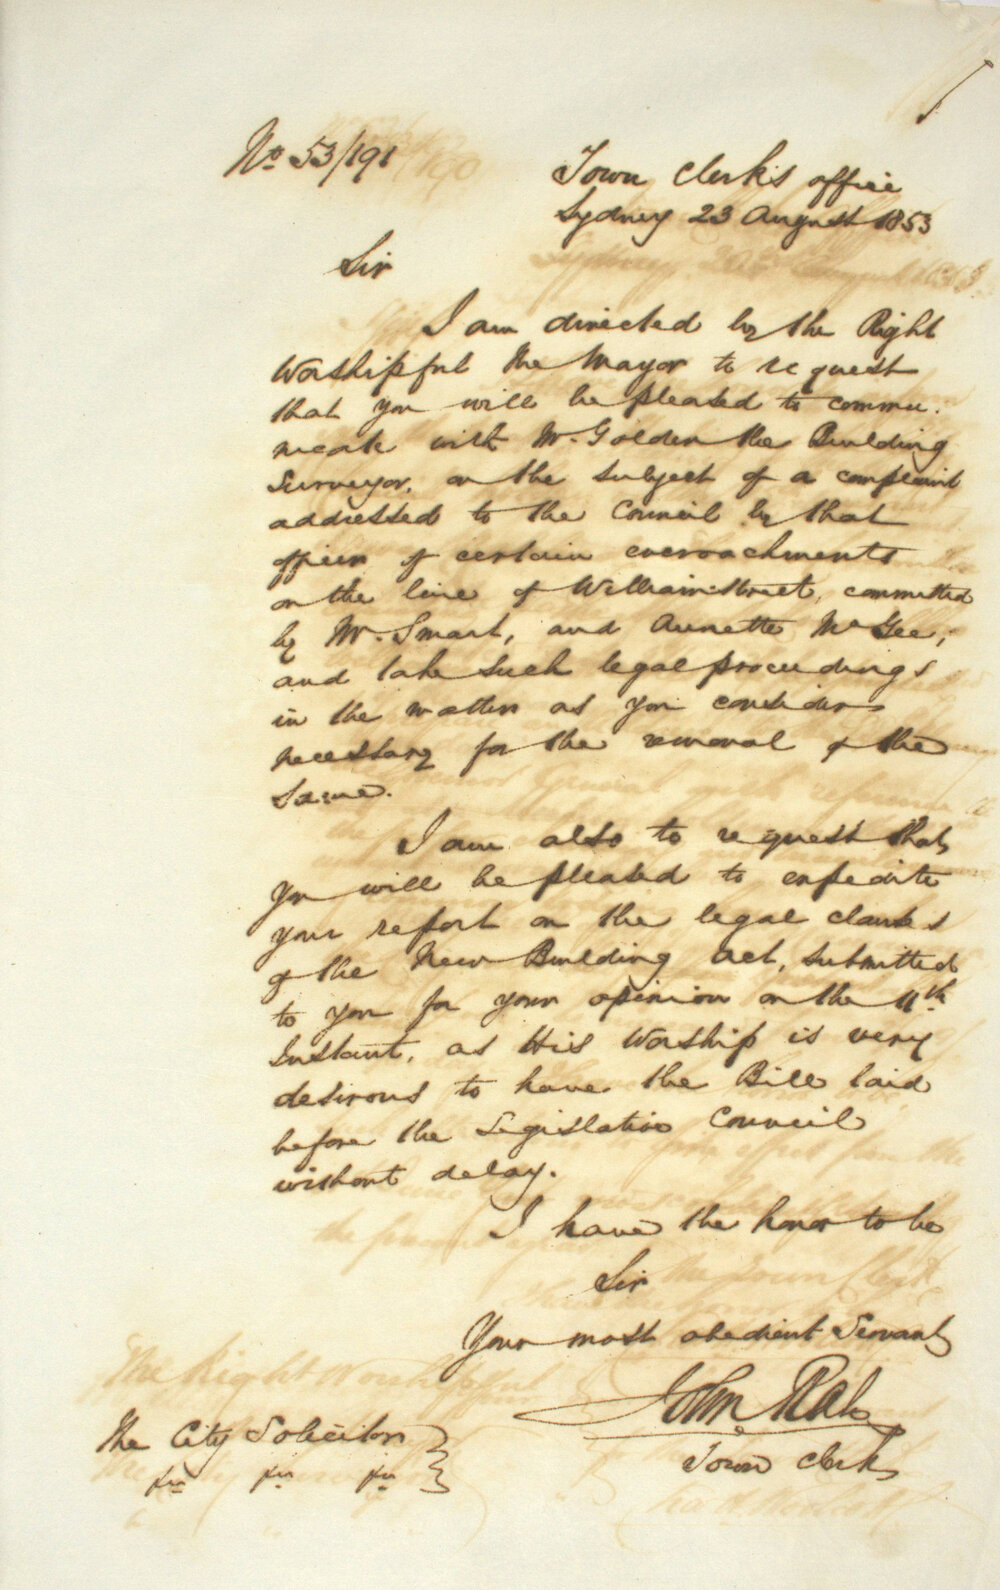 No 53/191
Town Clerk's office
Sydney 23 August 1853
Sir
I am directed by the Right
Worshipful the Mayor to request
that you will be pleased to commu-
nicate with Mr. Golden the Building
Surveyor, on the subject of a complaint
addressed to the Council by that
officer of certain encroachments
on the line of William Street, committed
by Mr. Smart, and Annette McGee;
and take such legal proceedings
in the matter as you consider
necessary for the removal of the
Same.
I am also to request that
you will be pleased to expedite
your report on the legal clauses
of the New Building Act, submitted
to you for your opinion on the 11th
Instant, as His Worship is very
desirous to have the Bill laid
before the Legislative Council
without delay.
I have the honor to be
Sir
Your most obedient Servant
John Rae
Town Clerk
The City Solicitor